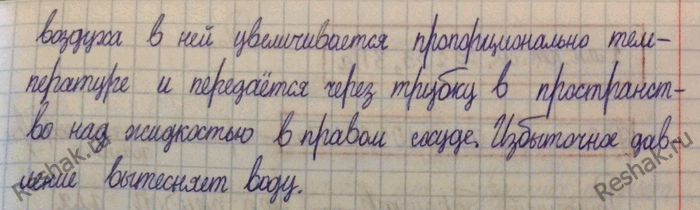 воздуха в ней увеличивается пропорционально тем-
пературе и передаётся через трубку в пространст-
во над жидкостью в правом сосуде. Избыточное дав-
ление вытесняет воду.
Reshak.ru
Reshak.ru